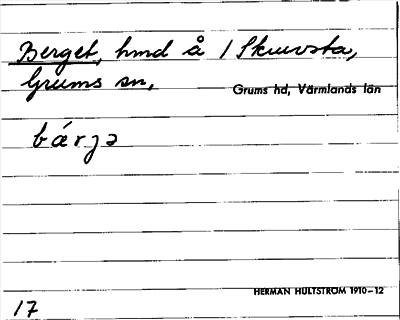 Berget, hmd å 1 Skruvsta,
Grums sn,
Grums hd, Värmlands län
bá́rjə
HERMAN HULTSTRÖM 1910–12
17